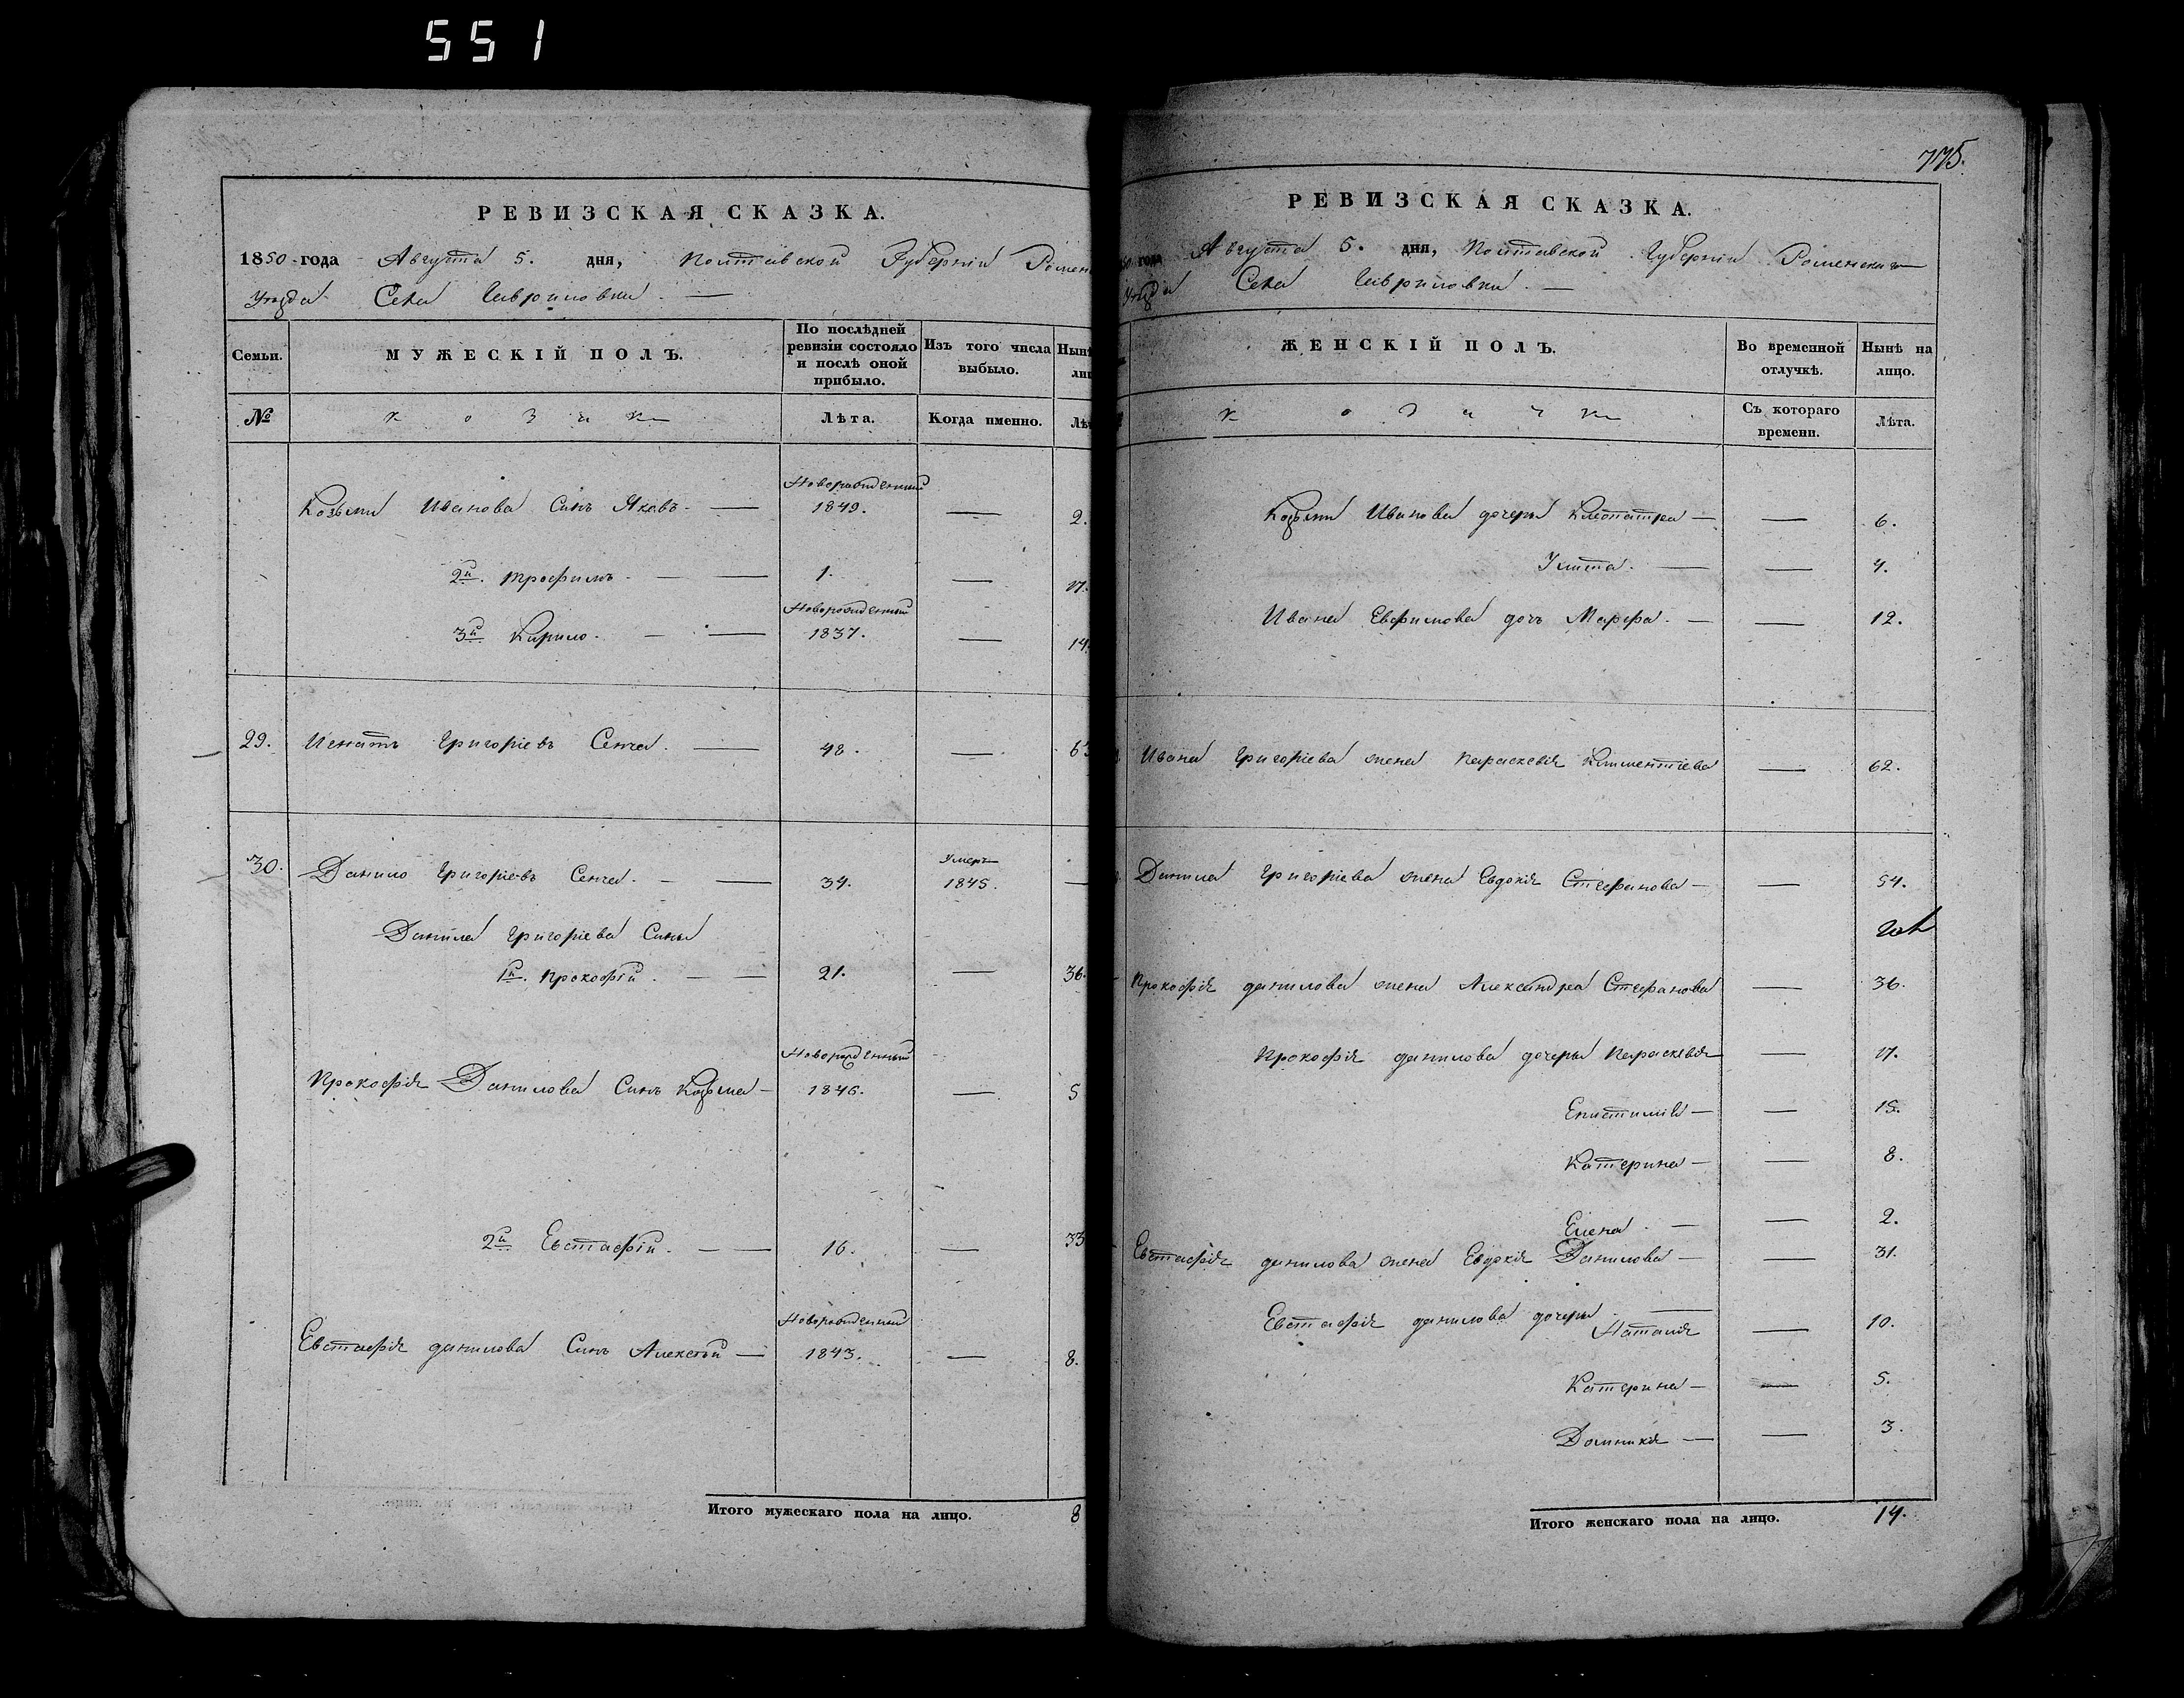 551
РЕВИЗСКАЯ СКАЗКА.
1850 года Августа 5. дня, Полтавской Губерніи Ромен
Уѣзда Села Гавриловки. —
Семьи. МУЖЕСКІЙ ПОЛЪ. По послѣдней ревизіи состояло и послѣ оной прибыло. Изъ того числа выбыло. Нынѣ
№ козаки Лѣта. Когда именно. Лѣ
Новорожденный
Козьми Иванова Синъ Яковъ. — 1849. — 2.
2й. Трофимъ. — — 1. — 17.
Новорожденный
3й Кирило. — — 1837. — 14.
29. Игнатъ Григоріевъ Сенча. — 48. — 63
Умеръ
30. Данило Григоріевъ Сенча. — — 34. 1845. —
Данила Григоріева Сины
1й. Прокофій. — — 21. — 36.
Новорожденный
Прокофія Данилова Синъ Козьма — 1846. — 5
2й Евстафій. — — 16. — 33
Новорожденный
Евстафія Данилова Синъ Алексѣй — 1843. — 8.
Итого мужескаго пола на лицо. 8
775.
РЕВИЗСКАЯ СКАЗКА.
50 года Августа 5. дня, Полтавской Губерніи Роменскаго
Уѣзда Села Гавриловки. —
ЖЕНСКІЙ ПОЛЪ. Во временной отлучкѣ. Нынѣ на лицо.
козачки Съ котораго времени. Лѣта.
Козьми Иванова дочери Клеопатра — — 6.
Улита. — — 4.
Ивана Евфимова дочь Марфа. — — 12.
Ивана Григоріева жена Параскевія Климентіева — 62.
Данила Григоріева жена Евдокія Стефанова — — 54.
Прокофія Данилова жена Александра Стефанова — 36.
Прокофія Данилова дочери Параскевія — 17.
Епистимія — — 15.
Катерина — — 8.
Елена. — — 2.
Евстафія Данилова жена Евдокія Данилова — — 31.
Евстафія Данилова дочери. —
Наталія — 10.
Катерина — — 5.
Домникія — — 3.
Итого женскаго пола на лицо. 14.